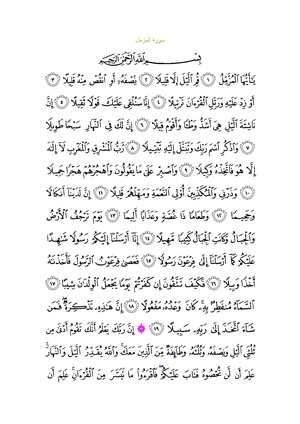 سورة المزمل
بِسْمِ اللَّهِ الرَّحْمَٰنِ الرَّحِيمِ
يَا أَيُّهَا الْمُزَّمِّلُ ١ قُمِ اللَّيْلَ إِلَّا قَلِيلًا ٢ نِّصْفَهُ أَوِ انقُصْ مِنْهُ قَلِيلًا ٣
أَوْ زِدْ عَلَيْهِ وَرَتِّلِ الْقُرْآنَ تَرْتِيلًا ٤ إِنَّا سَنُلْقِي عَلَيْكَ قَوْلًا ثَقِيلًا ٥ إِنَّ
نَاشِئَةَ اللَّيْلِ هِيَ أَشَدُّ وَطْئًا وَأَقْوَمُ قِيلًا ٦ إِنَّ لَكَ فِي النَّهَارِ سَبْحًا طَوِيلًا
٧ وَاذْكُرِ اسْمَ رَبِّكَ وَتَبَتَّلْ إِلَيْهِ تَبْتِيلًا ٨ رَّبُّ الْمَشْرِقِ وَالْمَغْرِبِ لَا إِلَٰهَ
إِلَّا هُوَ فَاتَّخِذْهُ وَكِيلًا ٩ وَاصْبِرْ عَلَىٰ مَا يَقُولُونَ وَاهْجُرْهُمْ هَجْرًا جَمِيلًا
١٠ وَذَرْنِي وَالْمُكَذِّبِينَ أُولِي النَّعْمَةِ وَمَهِّلْهُمْ قَلِيلًا ١١ إِنَّ لَدَيْنَا أَنكَالًا
وَجَحِيمًا ١٢ وَطَعَامًا ذَا غُصَّةٍ وَعَذَابًا أَلِيمًا ١٣ يَوْمَ تَرْجُفُ الْأَرْضُ
وَالْجِبَالُ وَكَانَتِ الْجِبَالُ كَثِيبًا مَّهِيلًا ١٤ إِنَّا أَرْسَلْنَا إِلَيْكُمْ رَسُولًا شَاهِدًا
عَلَيْكُمْ كَمَا أَرْسَلْنَا إِلَىٰ فِرْعَوْنَ رَسُولًا ١٥ فَعَصَىٰ فِرْعَوْنُ الرَّسُولَ فَأَخَذْنَاهُ
أَخْذًا وَبِيلًا ١٦ فَكَيْفَ تَتَّقُونَ إِن كَفَرْتُمْ يَوْمًا يَجْعَلُ الْوِلْدَانَ شِيبًا ١٧
السَّمَاءُ مُنفَطِرٌ بِهِ كَانَ وَعْدُهُ مَفْعُولًا ١٨ إِنَّ هَٰذِهِ تَذْكِرَةٌ فَمَن
شَاءَ اتَّخَذَ إِلَىٰ رَبِّهِ سَبِيلًا ١٩ إِنَّ رَبَّكَ يَعْلَمُ أَنَّكَ تَقُومُ أَدْنَىٰ مِن
ثُلُثَيِ اللَّيْلِ وَنِصْفَهُ وَثُلُثَهُ وَطَائِفَةٌ مِّنَ الَّذِينَ مَعَكَ وَاللَّهُ يُقَدِّرُ اللَّيْلَ وَالنَّهَارَ
عَلِمَ أَن لَّن تُحْصُوهُ فَتَابَ عَلَيْكُمْ فَاقْرَءُوا مَا تَيَسَّرَ مِنَ الْقُرْآنِ عَلِمَ أَن